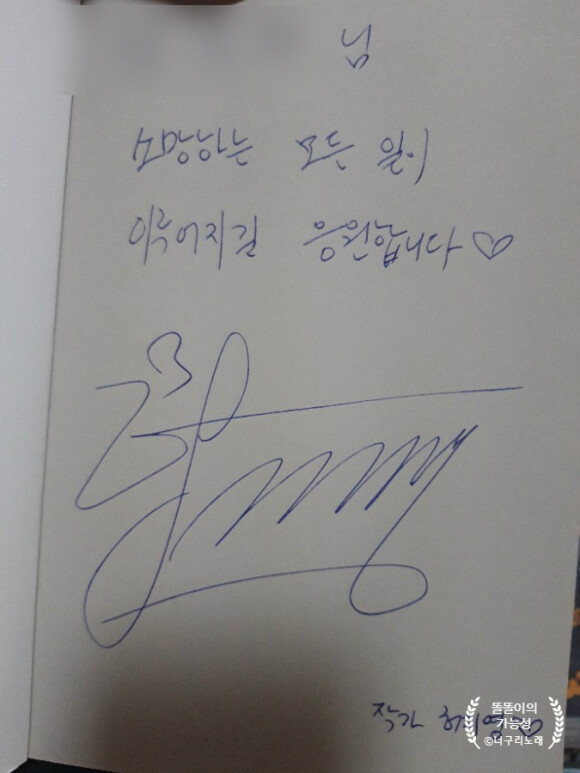 님
소망하는 모든 일이
이루어지길 응원합니다♡
작가
똘똘이의
가능성
©너구리노래